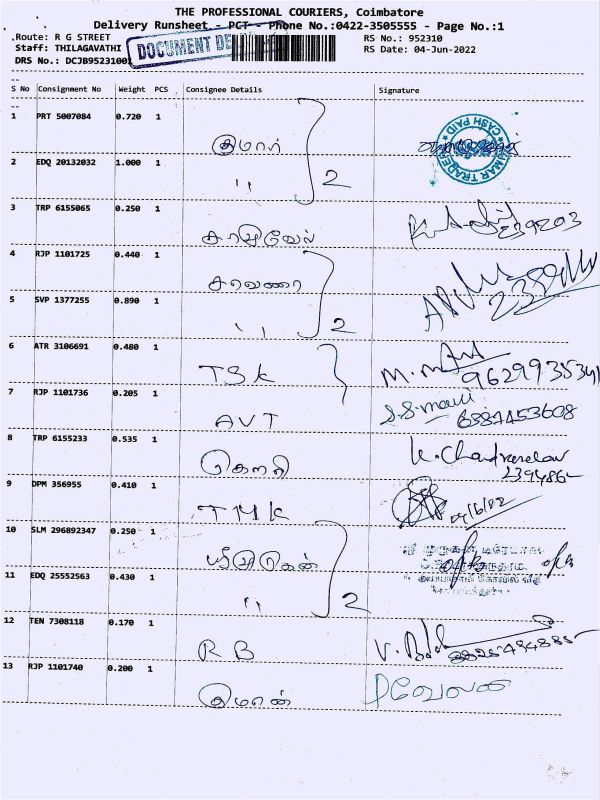 THE PROFESSIONAL COURIERS, Coimbatore
Delivery Runsheet - PCT - Phone No.:0422-3505555 - Page No.:1
Route: R G STREET RS No.: 952310
Staff: THILAGAVATHI RS Date: 04-Jun-2022
DOCUMENT DE
DRS No.: DCJB95231001
S No Consignment No Weight PCS Consignee Details Signature
1 PRT 5007084 0.720 1
குமார்
CASH PAID
2 EDQ 20132032 1.000 1
" 2
3 TRP 6155065 0.250 1
4 RJP 1101725 0.440 1
சரவணா
5 SVP 1377255 0.890 1
" 2
6 ATR 3106691 0.480 1
TSK 9629935341
7 RJP 1101736 0.205 1
AVT
8 TRP 6155233 0.535 1
கௌரி
9 DPM 356955 0.410 1
TMK
10 SLM 296892347 0.250 1
ஸ்ரீமுருகன்
11 EDQ 25552563 0.430 1
" 2
12 TEN 7308118 0.170 1
RB
13 RJP 1101740 0.200 1